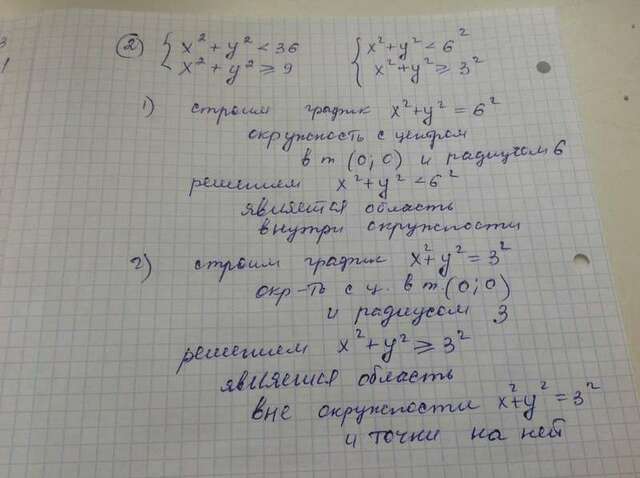 ② { x² + y² < 36 { x² + y² < 6²
x² + y² ⩾ 9 x² + y² ⩾ 3²
1) строим график x² + y² = 6²
окружность с центром
в т (0; 0) и радиусом 6
решением x² + y² < 6²
является область
внутри окружности
2) строим график x² + y² = 3²
окр-ть с ц. в т. (0; 0)
и радиусом 3
решением x² + y² ⩾ 3²
является область
вне окружности x² + y² = 3²
и точки на ней